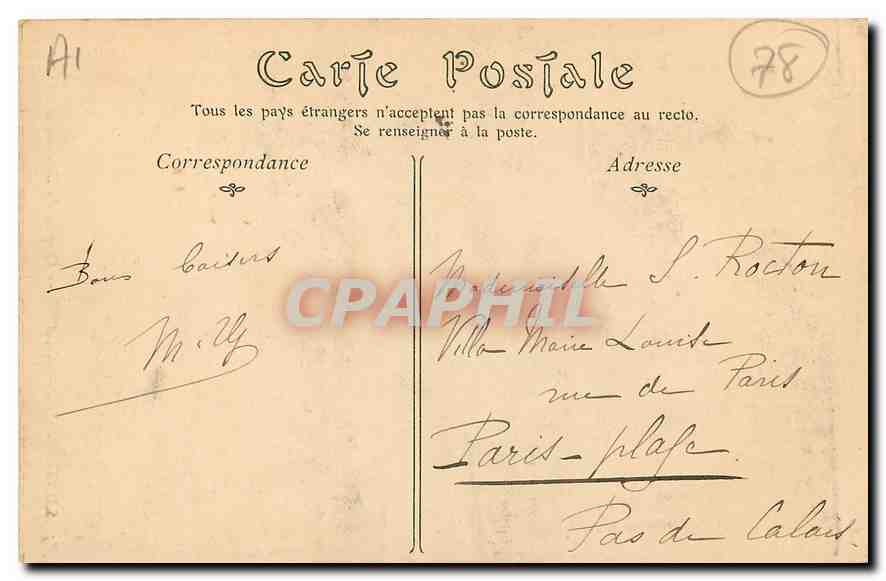 A1
78
Carte Postale
Tous les pays étrangers n'acceptent pas la correspondance au recto.
Se renseigner à la poste.
Correspondance
Bons baisers
M.
Adresse
Mademoiselle S. Rocton
Villa Marie Louise
rue de Paris
Paris-plage
Pas de Calais
CPAPHIL